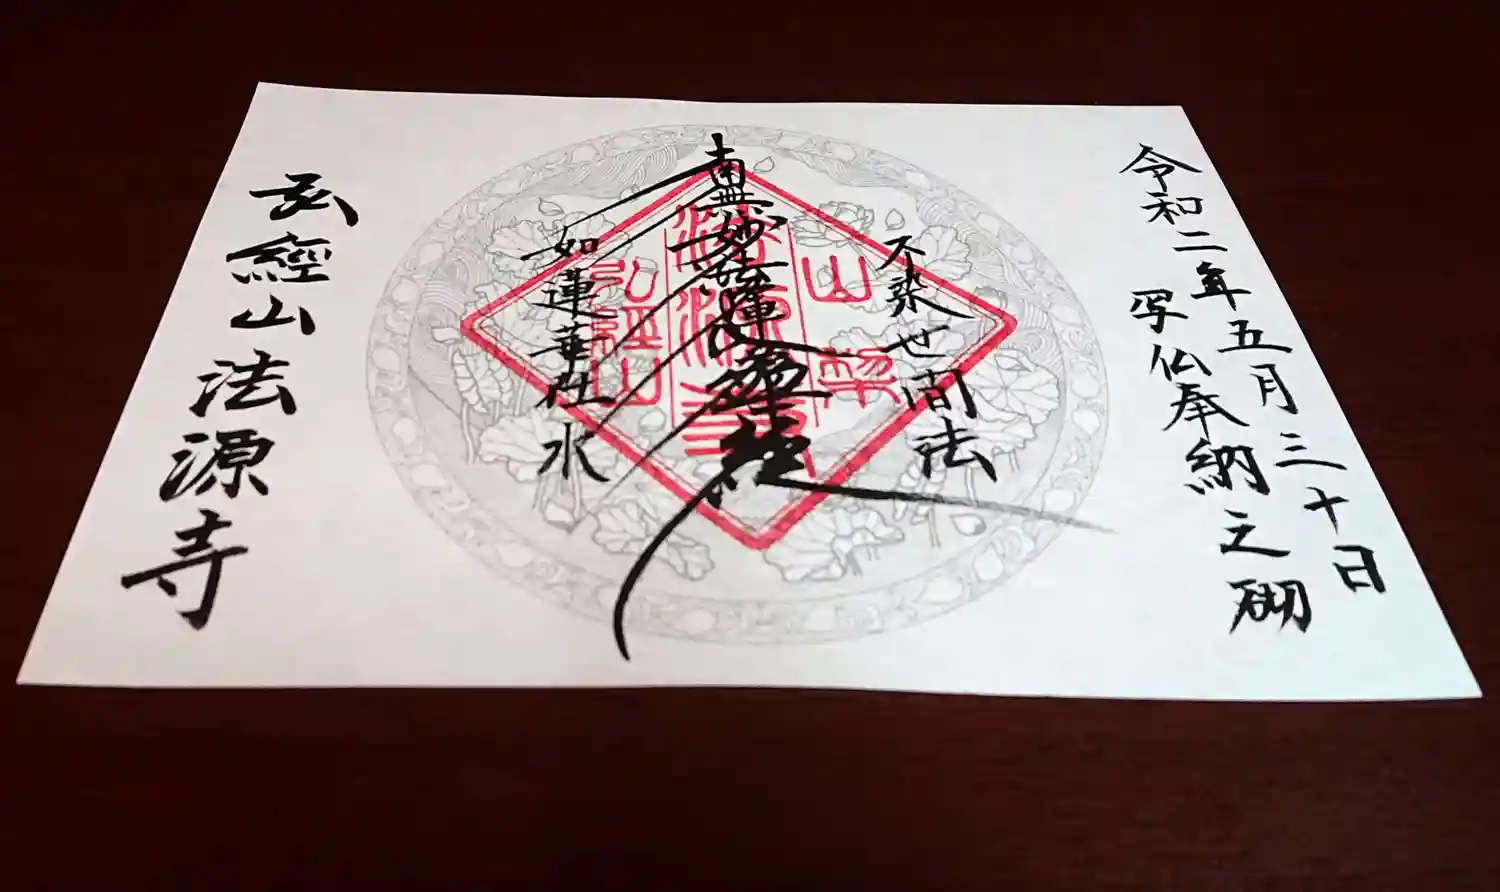 令和二年五月三十日
写仏奉納之砌
不染世間法
南無妙法蓮華経
如蓮華在水
山梨
法源寺
弘經山
弘經山法源寺